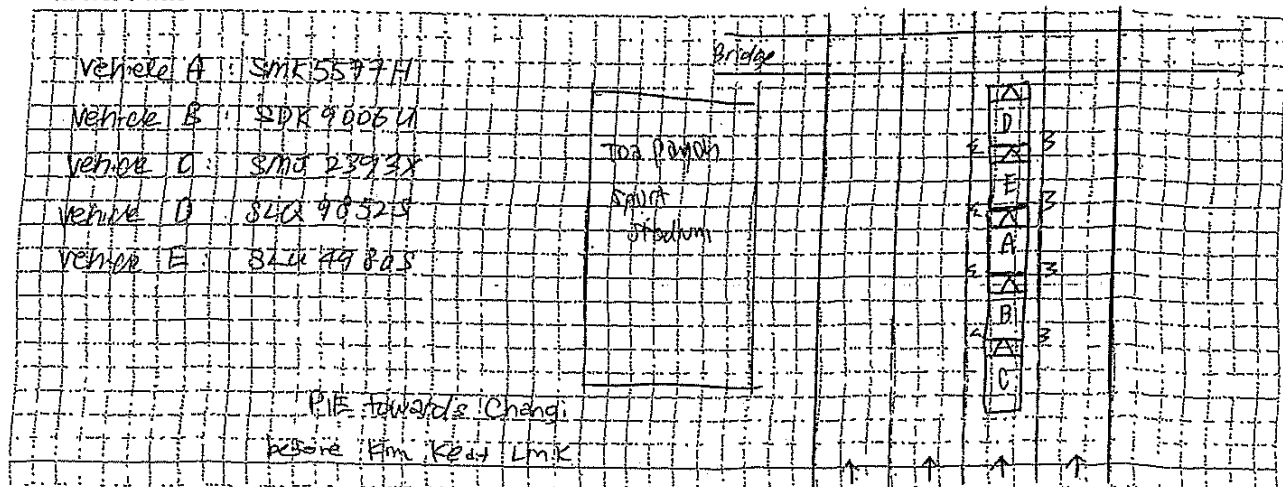 Vehicle A : SMK5577H
Vehicle B : SDK9006U
Vehicle C : SMJ2393X
Vehicle D : SLQ9852S
Vehicle E :
Bridge
Toa Payoh
Sport
Stadium
D
E
A
B
C
PIE towards Changi
before